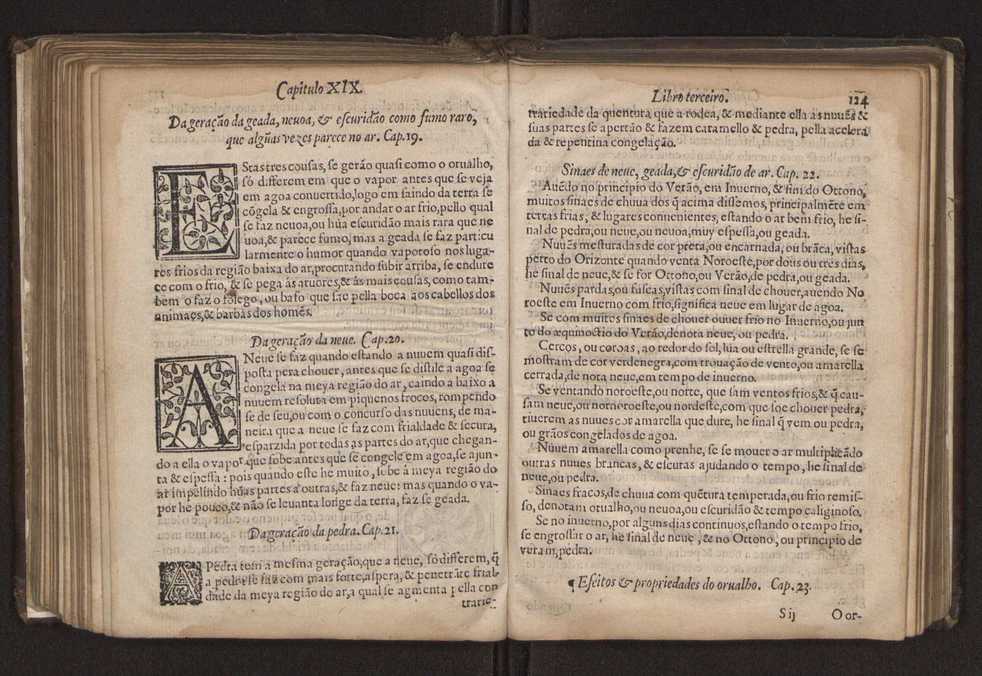 Capitulo XIX.
Da geração da geada, neuoa, & escuridão como fumo raro,
que algũas vezes parece no ar. Cap.19.
EStas tres cousas, se gerão quasi como o orualho,
só differem em que o vapor antes que se veja
em agoa conuertido, logo em saindo da terra se
cõgela & engrossa, por andar o ar frio, pello qual
se faz neuoa, ou hũa escuridão mais rara que ne
uoa, & parece fumo, mas a geada se faz particu
larmente o humor quando vaporoso nos luga-
res frios da região baixa do ar, procurando subir arriba, se endure
ce com o frio, & se pega ás aruores, & ás mais cousas, como tam-
bem o faz o folego, ou bafo que sae pella boca aos cabellos dos
animaes, & barbas dos homẽs.
Da geração da neue. Cap.20.
A Neue se faz quando estando a nuuem quasi dis-
posta pera chouer, antes que se distile a agoa se
congela na meya região do ar, caindo a baixo a
nuuem resoluta em piquenos frocos, rompendo
se de seu, ou com o concurso das nuuens, de ma-
neira que a neue se faz com frialdade & secura,
esparzida por todas as partes do ar, que chegan-
do a ella o vapor que sobe antes que se congele em agoa, se ajun-
ta & espessa : pois quando este he muito, sobe á meya região do
ar impelindo hũas partes a outras, & faz neue: mas quando o va-
por he pouco, & não se leuanta longe da terra, faz se geada.
Da geração da pedra. Cap.21.
A Pedra tem a mesma geração, que a neue, só differem, q̃
a pedra se faz com mais forte, aspera, & penetrãte frial
dade da meya região do ar, a qual se agmenta pella con
trarie-
Libro terceiro.
124
trariedade da quentura que a rodea, & mediante ella as nuuẽs &
suas partes se apertão & fazem caramello & pedra, pella acelera
da & repentina congelação.
Sinaes de neue, geada, & escuridão de ar. Cap. 22.
Auẽdo no principio do Verão, em Inuerno, & fim do Ottono,
muitos sinaes de chuua dos q̃ acima dissemos, principalmẽte em
terras frias, & lugares conuenientes, estando o ar bem frio, he si-
nal de pedra, ou neue, ou neuoa, muy espessa, ou geada.
Nuuẽs mesturadas de cor preta, ou encarnada, ou brãca, vistas
perto do Orizonte quando venta Noroeste, por dous ou tres dias,
he sinal de neue, & se for Ottono, ou Verão, de pedra, ou geada.
Nuuẽs pardas, ou fuscas, vistas com sinal de chouer, auendo No
roeste em Inuerno com frio, significa neue em lugar de agoa.
Se com muitos sinaes de chouer ouuer frio no Inuerno, ou jun
to do æquinoctio do Verão, denota neue, ou pedra.
Cercos, ou coroas, ao redor do sol, lũa ou estrella grande, se se
mostram de cor verdenegra, com trouação de vento, ou amarella
cerrada, de nota neue, em tempo de inuerno.
Se ventando noroeste, ou norte, que sam ventos frios, & q̃ cau-
sam neue, ou nornoroeste, ou nordeste, com que soe chouer pedra,
tiuerem as nuues cor amarella que dure, he sinal q̃ vem ou pedra,
ou grãos congelados de agoa.
Nuuem amarella como prenhe, se se mouer o ar multiplicãdo
outras nuues brancas, & escuras ajudando o tempo, he sinal de
neue, ou pedra.
Sinaes fracos, de chuua com quẽtura temperada, ou frio remis-
so, denotam orualho, ou neuoa, ou escuridão & tempo caliginoso.
Se no inuerno, por alguns dias continuos, estando o tempo frio,
se engrossar o ar, he sinal de neue, & no Ottono, ou principio de
veram, pedra.
¶ Efeitos & propriedades do orualho. Cap. 23.
S ij
O or-